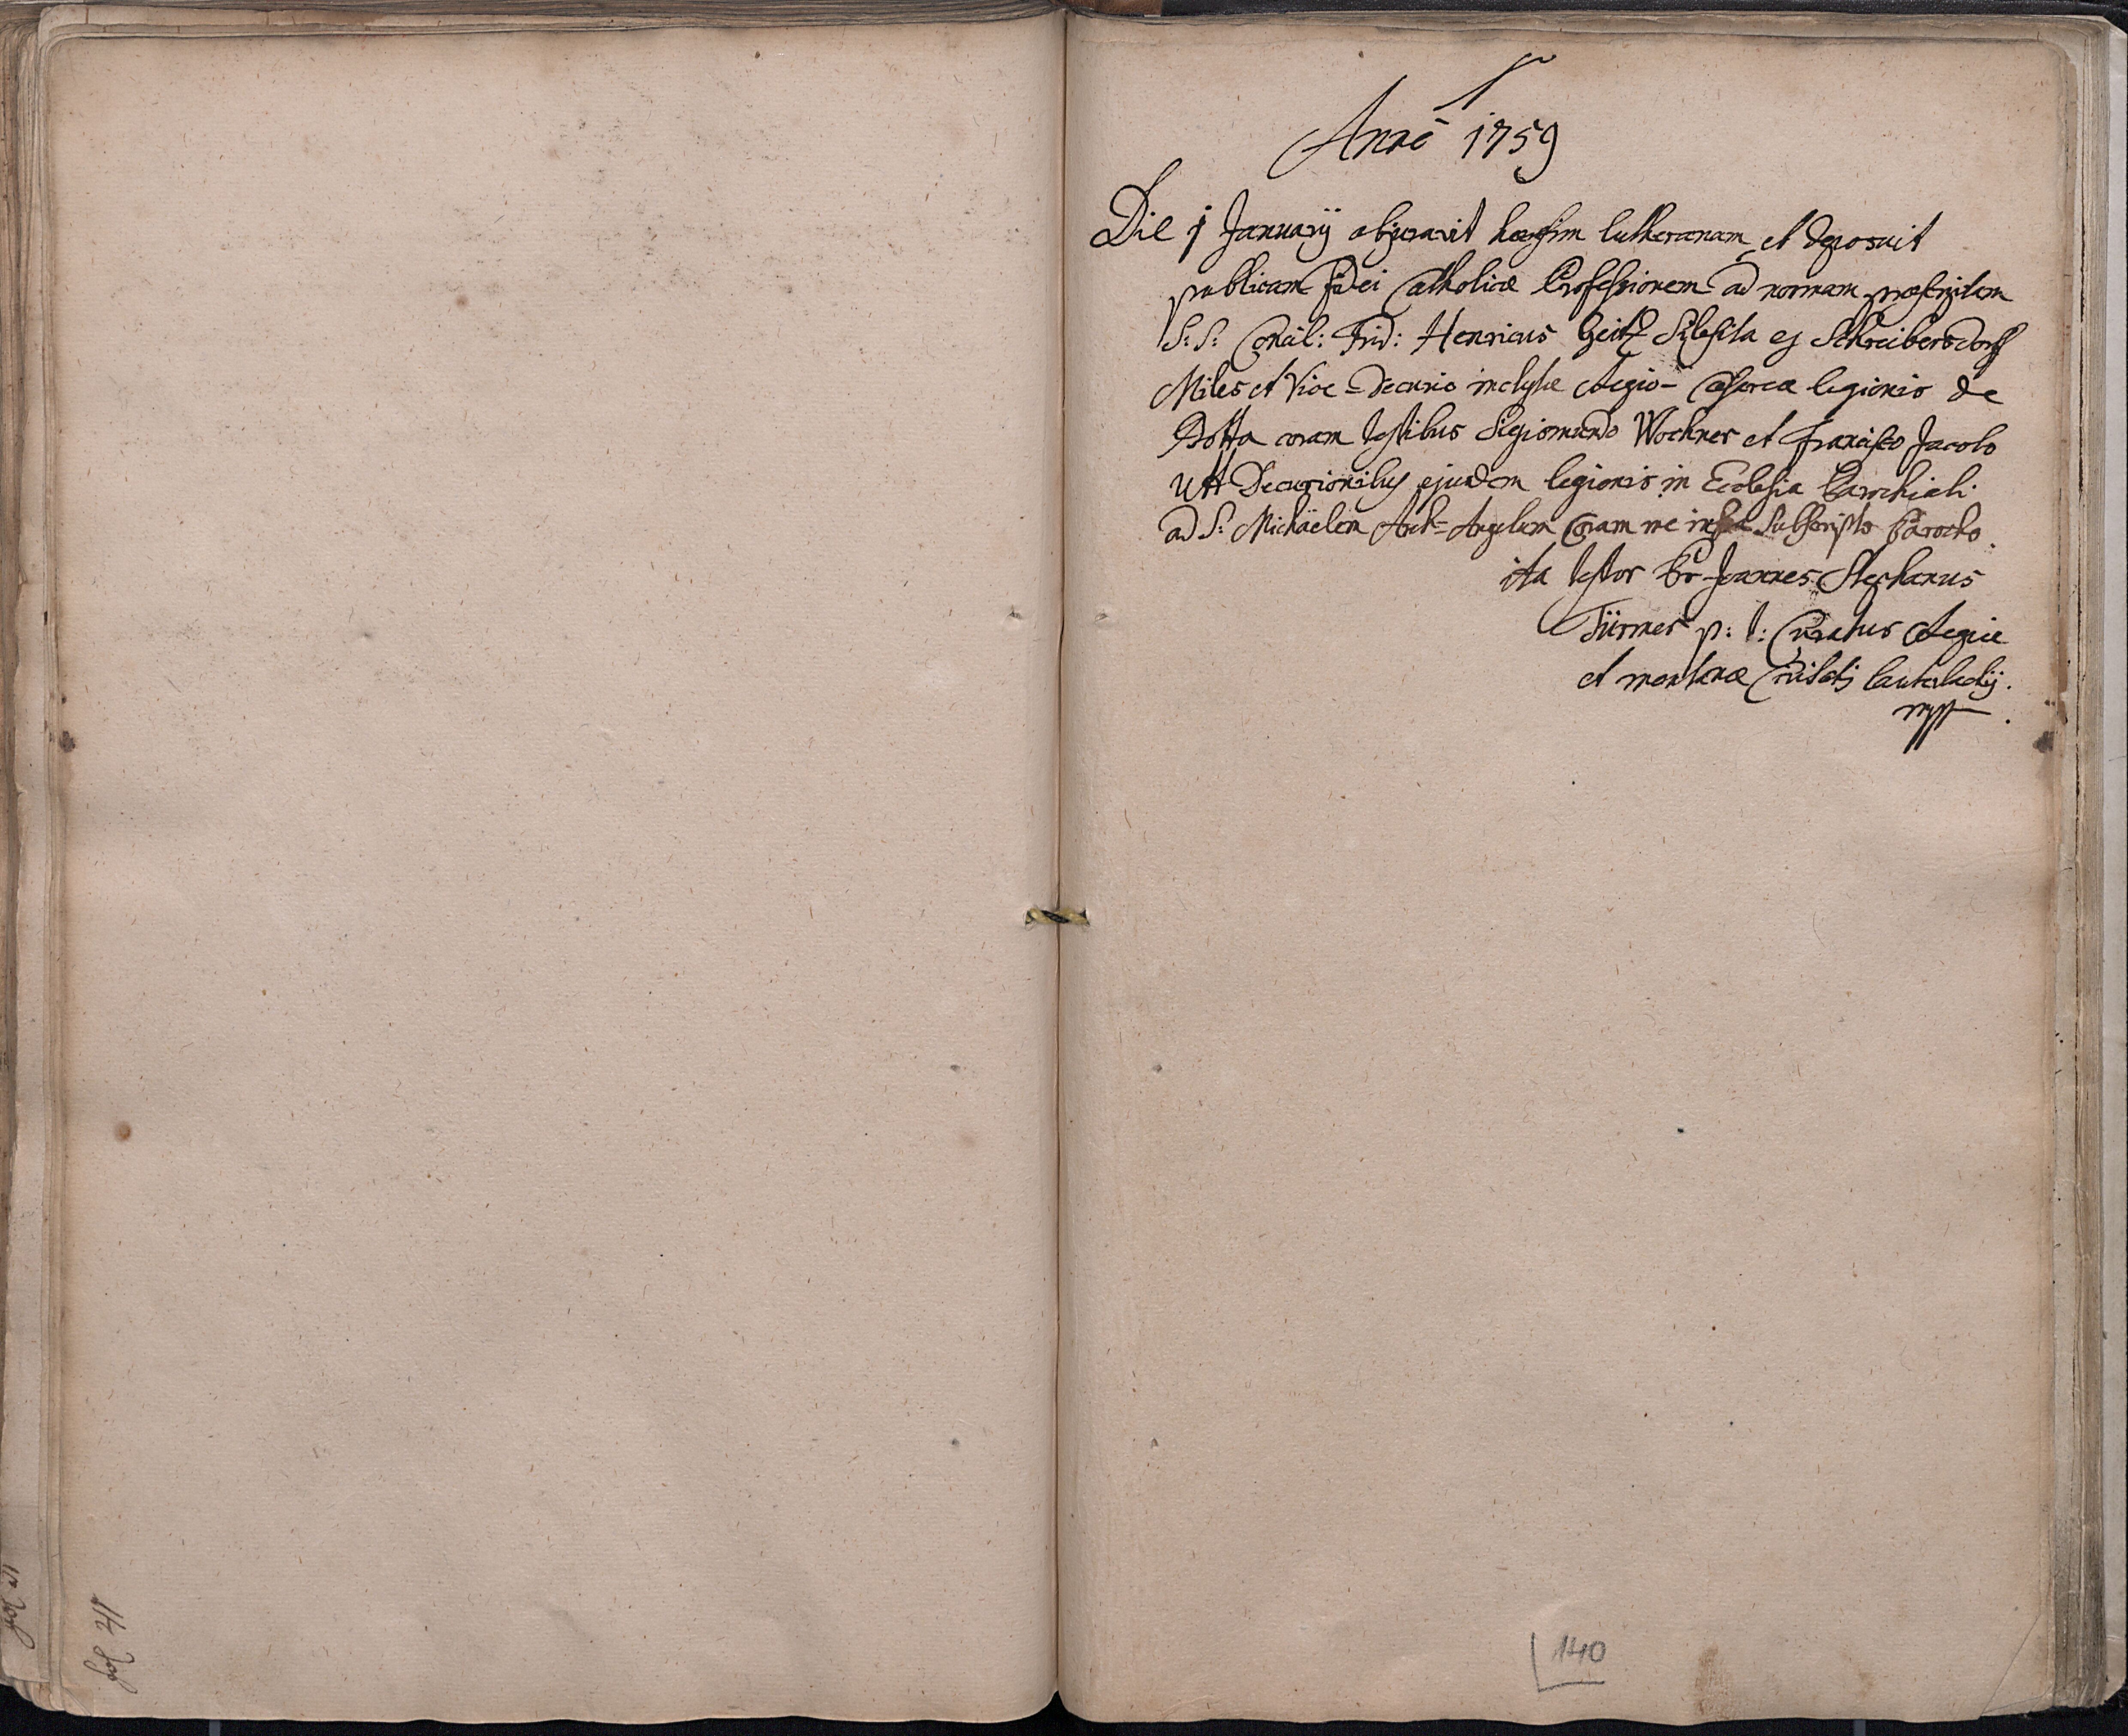 Anno 1759
Die 1 Januarij abjuravit haeresim lutheranam et deposuit
publicam fidei Catholicae Professionem ad normam praescriptam
S: S: Concil: Trid: Henricus Geitz Silesita ex Schreibersdorff
Miles et Vice=Decurio inclytae Regio- Caesareae legionis de
Botta coram testibus Sigismundo Wochner et Francisco Jacobo
Utt Decurionibus ejusdem legionis in Ecclesia Parochiali
ad S: Michäelem Arch=Angelum Coram me infra Subscripto Parocho.
ita testor Pr Joannes Stephanus
Türmer p: t: Curatus Regiae
et montanae Civitatis
mpp.
fol 217
140